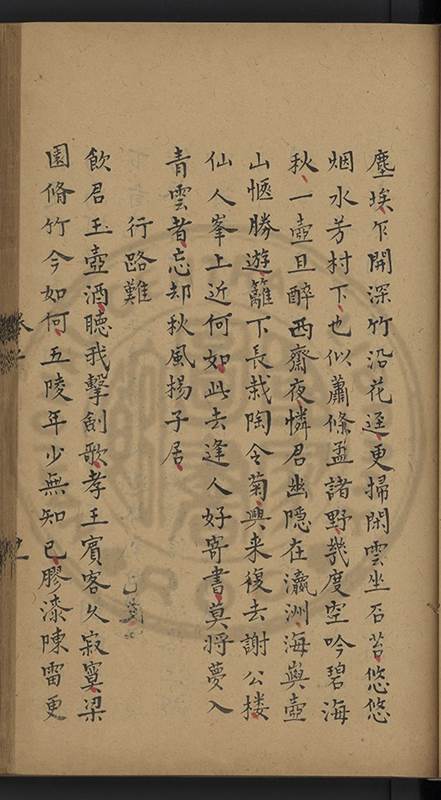 塵埃乍開深竹沿花逕更掃閑雲坐石苔悠悠
烟水芳村下也似蕭條孟諸野幾度空吟碧海
秋一壺且醉西齋夜憐君幽隱在瀛洲海與壺
山愜勝遊籬下長栽陶令菊興来復去謝公楼
仙人峯上近何如此去逢人好寄書莫將夢入
青雲者忘却秋風揚子居
行路難
飲君玉壺酒聽我擊劍歌孝王賓客久寂寞梁
園脩竹今如何五陵年少無知已膠漆陳雷更